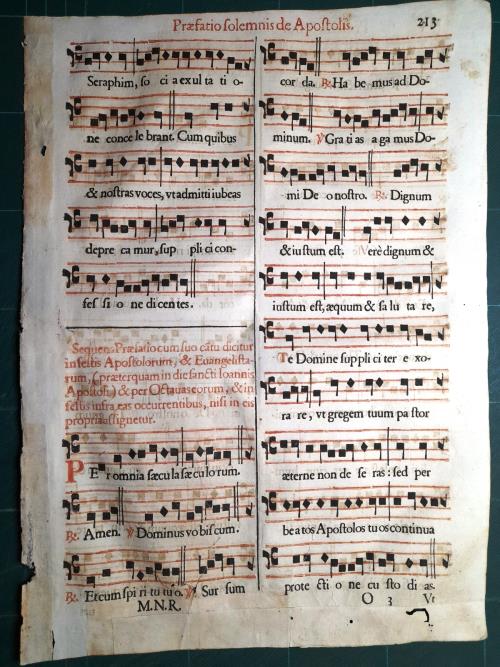 Præfatio solemnis de Apostolis.
213
Seraphim, so ci a exul ta ti o-
ne conce le brant. Cum quibus
& nostras voces, vt admitti iubeas
depre ca mur, sup pli ci con-
fes si o ne dicentes.
Sequens Præfatio cum suo cātu dicitur
in festis Apostolorum, & Euangelista-
rum, (præterquam in die sancti Ioannis
Apostoli) & per Octauas eorum, & in
festis infra eas occurrentibus, nisi in eis
propria assignetur.
PEr omnia sæcu la sæ cu lo rum.
℟. Amen. ℣ Dominus vo bis cum.
℟. Et cum spi ri tu tu o. ℣ Sur sum
M.N.R.
cor da. ℟. Ha be mus ad Do-
minum. ℣ Gra ti as a ga mus Do-
mi no De o nostro. ℟. Dignum
& iu stum est. Verè dignum &
iustum est, æquum & sa lu ta re,
Te Domine sup pli ci ter e xo-
ra re, vt gregem tuum pa stor
æterne non de se ras: sed per
be a tos Apostolos tu os continua
prote cti o ne cu sto di as.
O 3 Vt